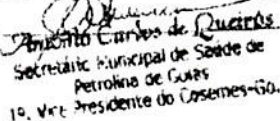 Antônio Carlos de Queirós
Secretário Municipal de Saúde de
Petrolina de Goiás
1º. Vice Presidente do Cosemes-Go.